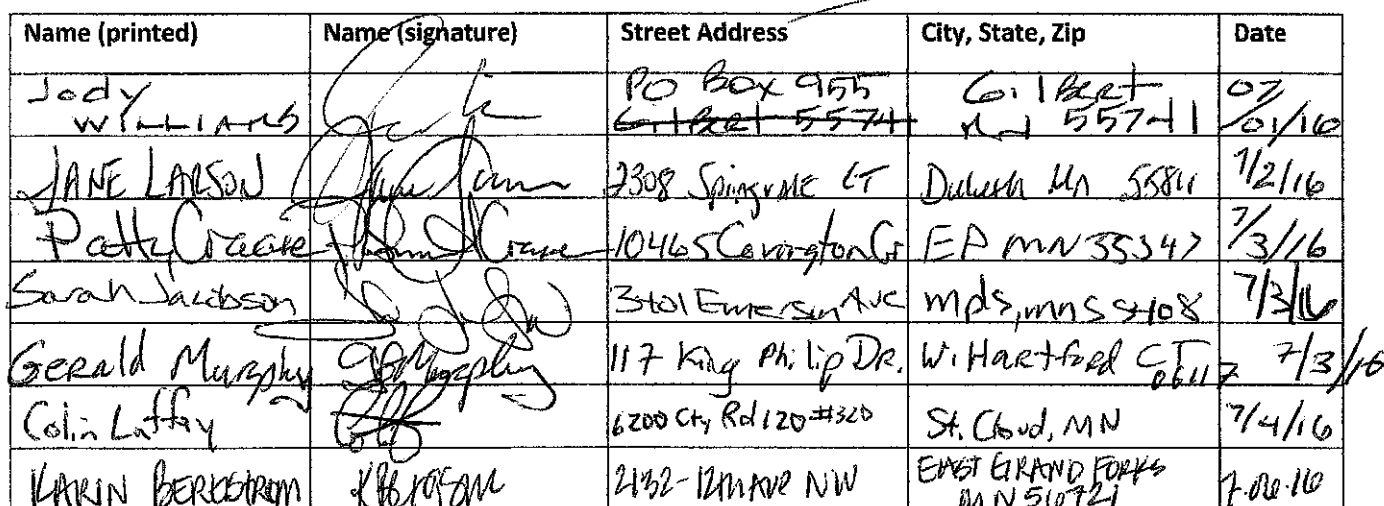 Name (printed) Name (signature) Street Address City, State, Zip Date
Jody Williams PO Box 955 Gilbert 07
Gilbert 55741 Mn 55741 /01/16
JANE LARSON Jane Larson 2308 Springvale CT Duluth Mn 55811 7/2/16
Patty Crease 10465 Covington Cr EP MN 55347 7/3/16
Sarah Jacobson 3401 Emerson Ave mpls, mn 55408 7/3/16
Gerald Murphy G Murphy 117 King Philip DR. W. Hartford CT 06117 7/3/16
Colin Laffey 6200 Cty Rd 120 #320 St. Cloud, MN 7/4/16
KARIN BERGSTROM 2132-12th AVE NW EAST GRAND FORKS 7.06.16
MN 56721